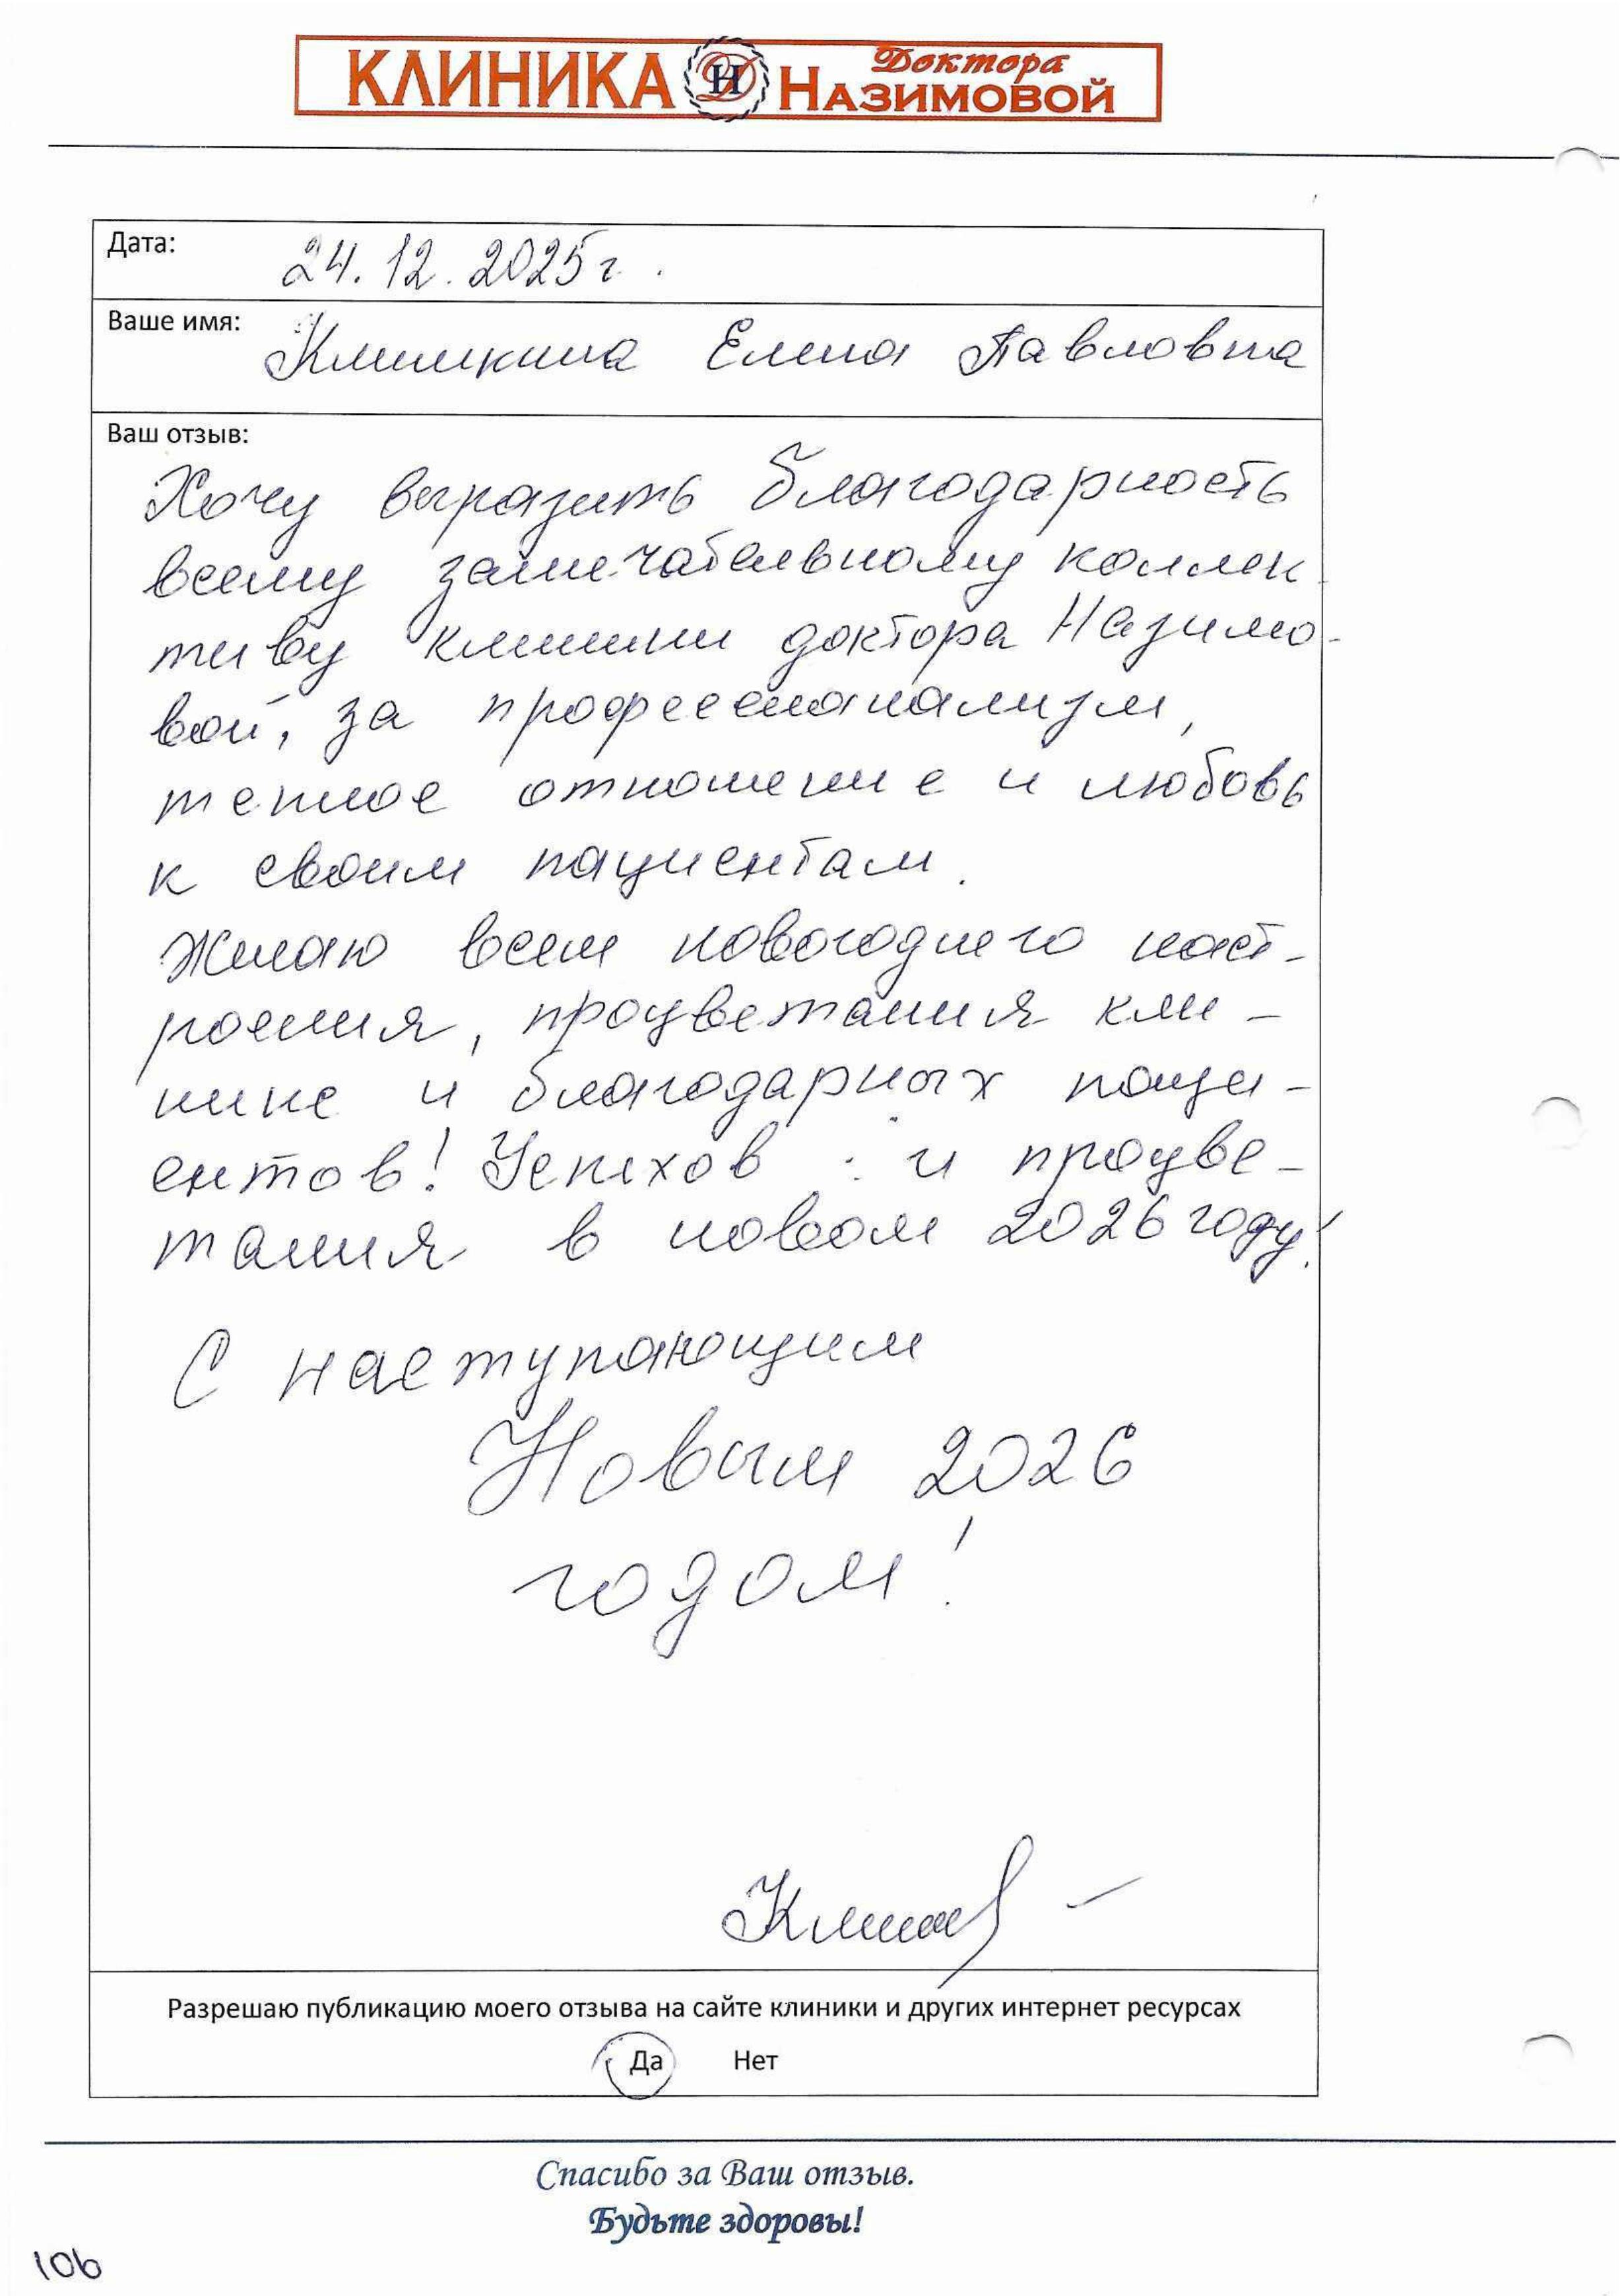 КЛИНИКА ДН Доктора НАЗИМОВОЙ
Дата: 24.12.2025г.
Ваше имя: Климкина Елена Павловна
Ваш отзыв:
Хочу выразить благодарность
всему замечательному коллек
тиву клиники доктора Назимо-
вой, за профессионализм,
теплое отношение и любовь
к своим пациентам.
Желаю всем новогоднего наст-
роения, процветания кли-
нике и благодарных паци-
ентов! Успехов и процве-
тания в новом 2026 году!
С наступающим
Новым 2026
годом!
Разрешаю публикацию моего отзыва на сайте клиники и других интернет ресурсах
Да Нет
Спасибо за Ваш отзыв.
Будьте здоровы!
106